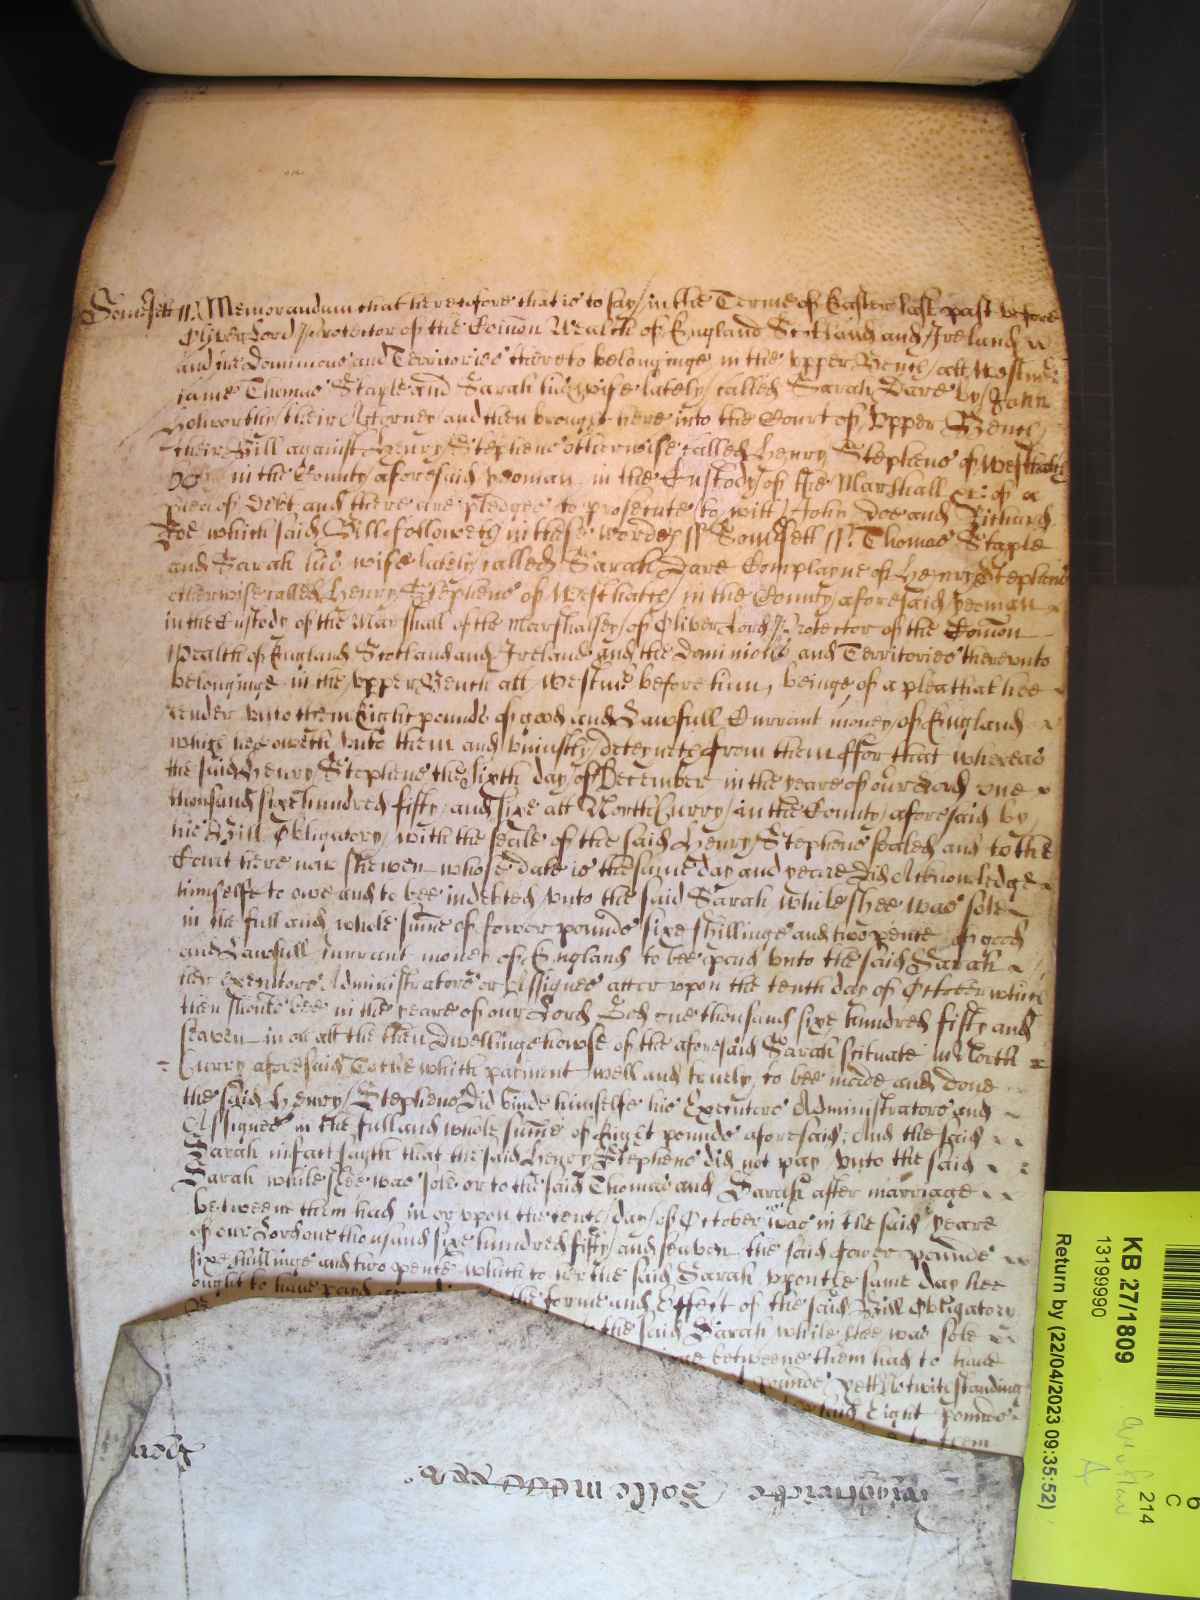 Somersett ss. Memorandum that heretofore that is to say in the Terme of Easter last past before
Oliver Lord Protector of the Comon Wealth of England Scotland and Ireland
and the Dominions and Territories thereto belonginge in the vpper Bench att Westmr
came Thomas Staple and Sarah his wife lately called Sarah Dare by John
their Attorney and then brought here into the Court of Vpper Bench
their Bill against Henry Stephens otherwise called Henry Stephens of Westhatch
in the County aforesaid yeoman in the Custody of the Marshall &c: of a
plea of Debt and there are pledges to prosecute to witt John Doe and Richard
Roe which said Bill followeth in these wordes ss Somersett ss. Thomas Staple
and Sarah his wife lately called Sarah Dare Complayne of Henry Stephens
otherwise called Henry Stephens of Westhatch in the County aforesaid yeoman
in the Custody of the Marshall of the Marshalsey of Oliver Lord Protector of the Comon
Wealth of England Scotland and Ireland and the Dominions and Territories therevnto
belonginge in the vpper Bench att Westmr before him, beinge of a plea that hee
render vnto them Eight pounds of good and Lawfull Currant money of England
which hee oweth vnto them and vniustly deteyneth from them ffor that whereas
the said Henry Stephens the sixth day of December in the yeare of our Lord one
thousand sixe hundred fifty and sixe att North Curry in the County aforesaid by
his Bill Obligatory with the seale of the said Henry Stephens sealed and to the
Court here now shewen whose date is the same day and yeare Did Acknowledge
himselfe to owe and to bee indebted vnto the said Sarah while shee was sole
in the full and whole sume of fower pounds sixe shillinge and two pence of good
and Lawfull Currant money of England to bee paid vnto the said Sarah
her Executors Administrators or Assignes att or vpon the tenth day of October which
then should bee in the yeare of our Lord God one thousand sixe hundred fifty and
seaven in or att the then Dwellinge howse of the aforesaid Sarah scituate in North
Curry aforesaid To the which paiment well and truely to bee made and done
the said Henry Stephens Did binde himselfe his Executors Administrators and
Assignes in the full and whole sume of Eight pounds aforesaid; And the said
Sarah in fact sayth that the said Henry Stephens did not pay vnto the said
Sarah while shee was sole or to the said Thomas and Sarah after marriage
betweene them had in or vpon the tenth day of October was in the said yeare
of our Lord one thousand sixe hundred fifty and seaven the said fower pounds
sixe shillinge and two pence which to her the said Sarah vpon the same day hee
ought to have payd the forme and Effect of the said Bill Obligatory
the said Sarah while shee was sole
betweene them had to have
pounds yett Notwithstanding
said Eight pounds
to them
KB 27/1809
13199990
Return by (22/04/2023 09:35:52)
214
C
6